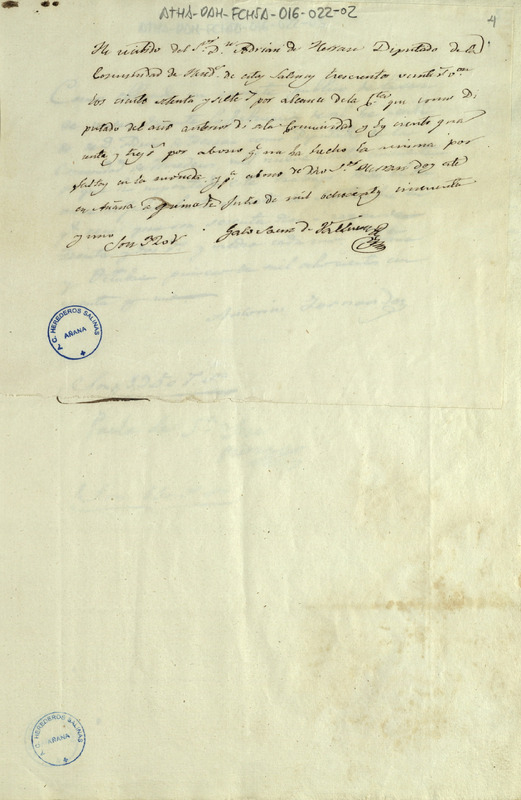 ATHA-DAH-FCHSA-016-022-02
4
He recibido del Sr. Dn. Adrian de Herran Diputado de la
Comunidad de Hered.s de estas Salinas trescientos veinte r.s
los ciento setenta y siete r.s por alcance de la Cta que como Di
putado del año anterior di a la Comunidad y los ciento qua
renta y tres por abono q.e me ha hecho la misma por
faltas en la moneda y p.a abono de dho Sr. Herran doy este
en Añana a primero de Julio de mil ochocientos cincuenta
y uno
Son 320 r.
Galo Saenz de
A. C. HEREDEROS SALINAS
AÑANA
A. C. HEREDEROS SALINAS
AÑANA